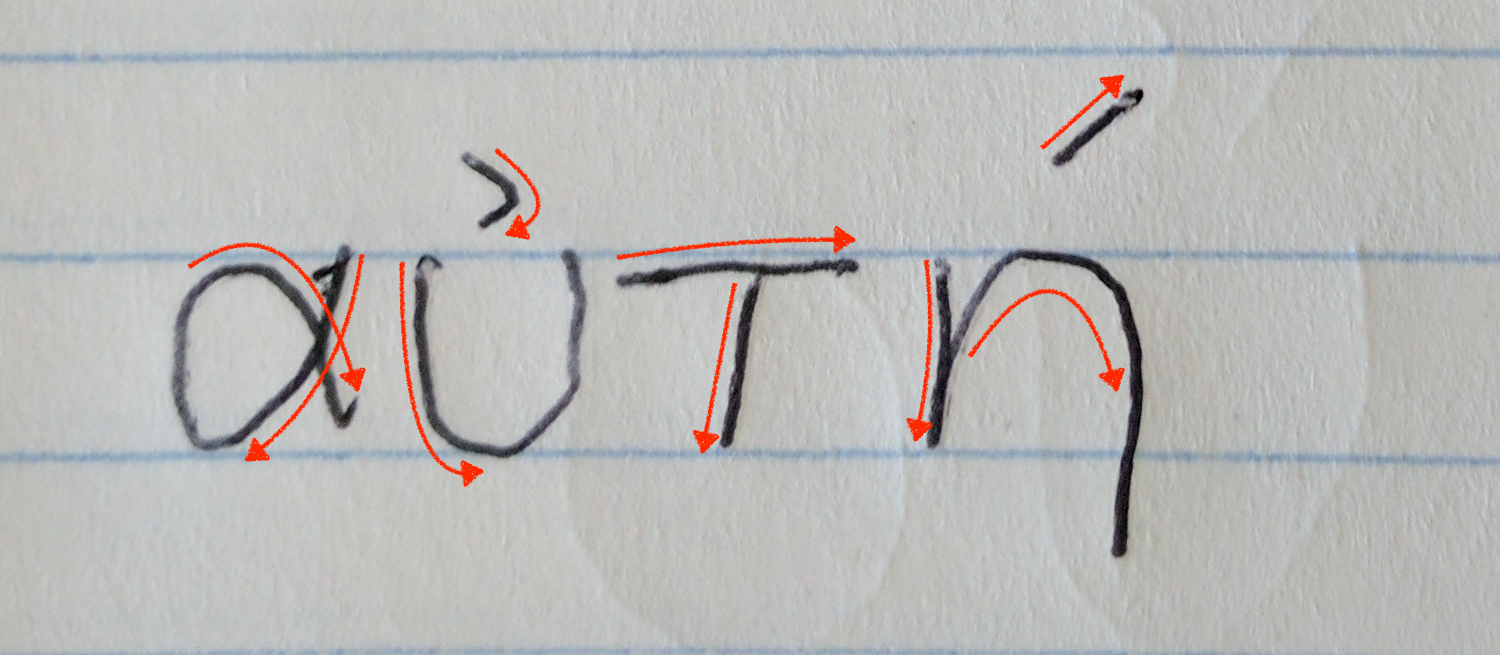 αὐτή